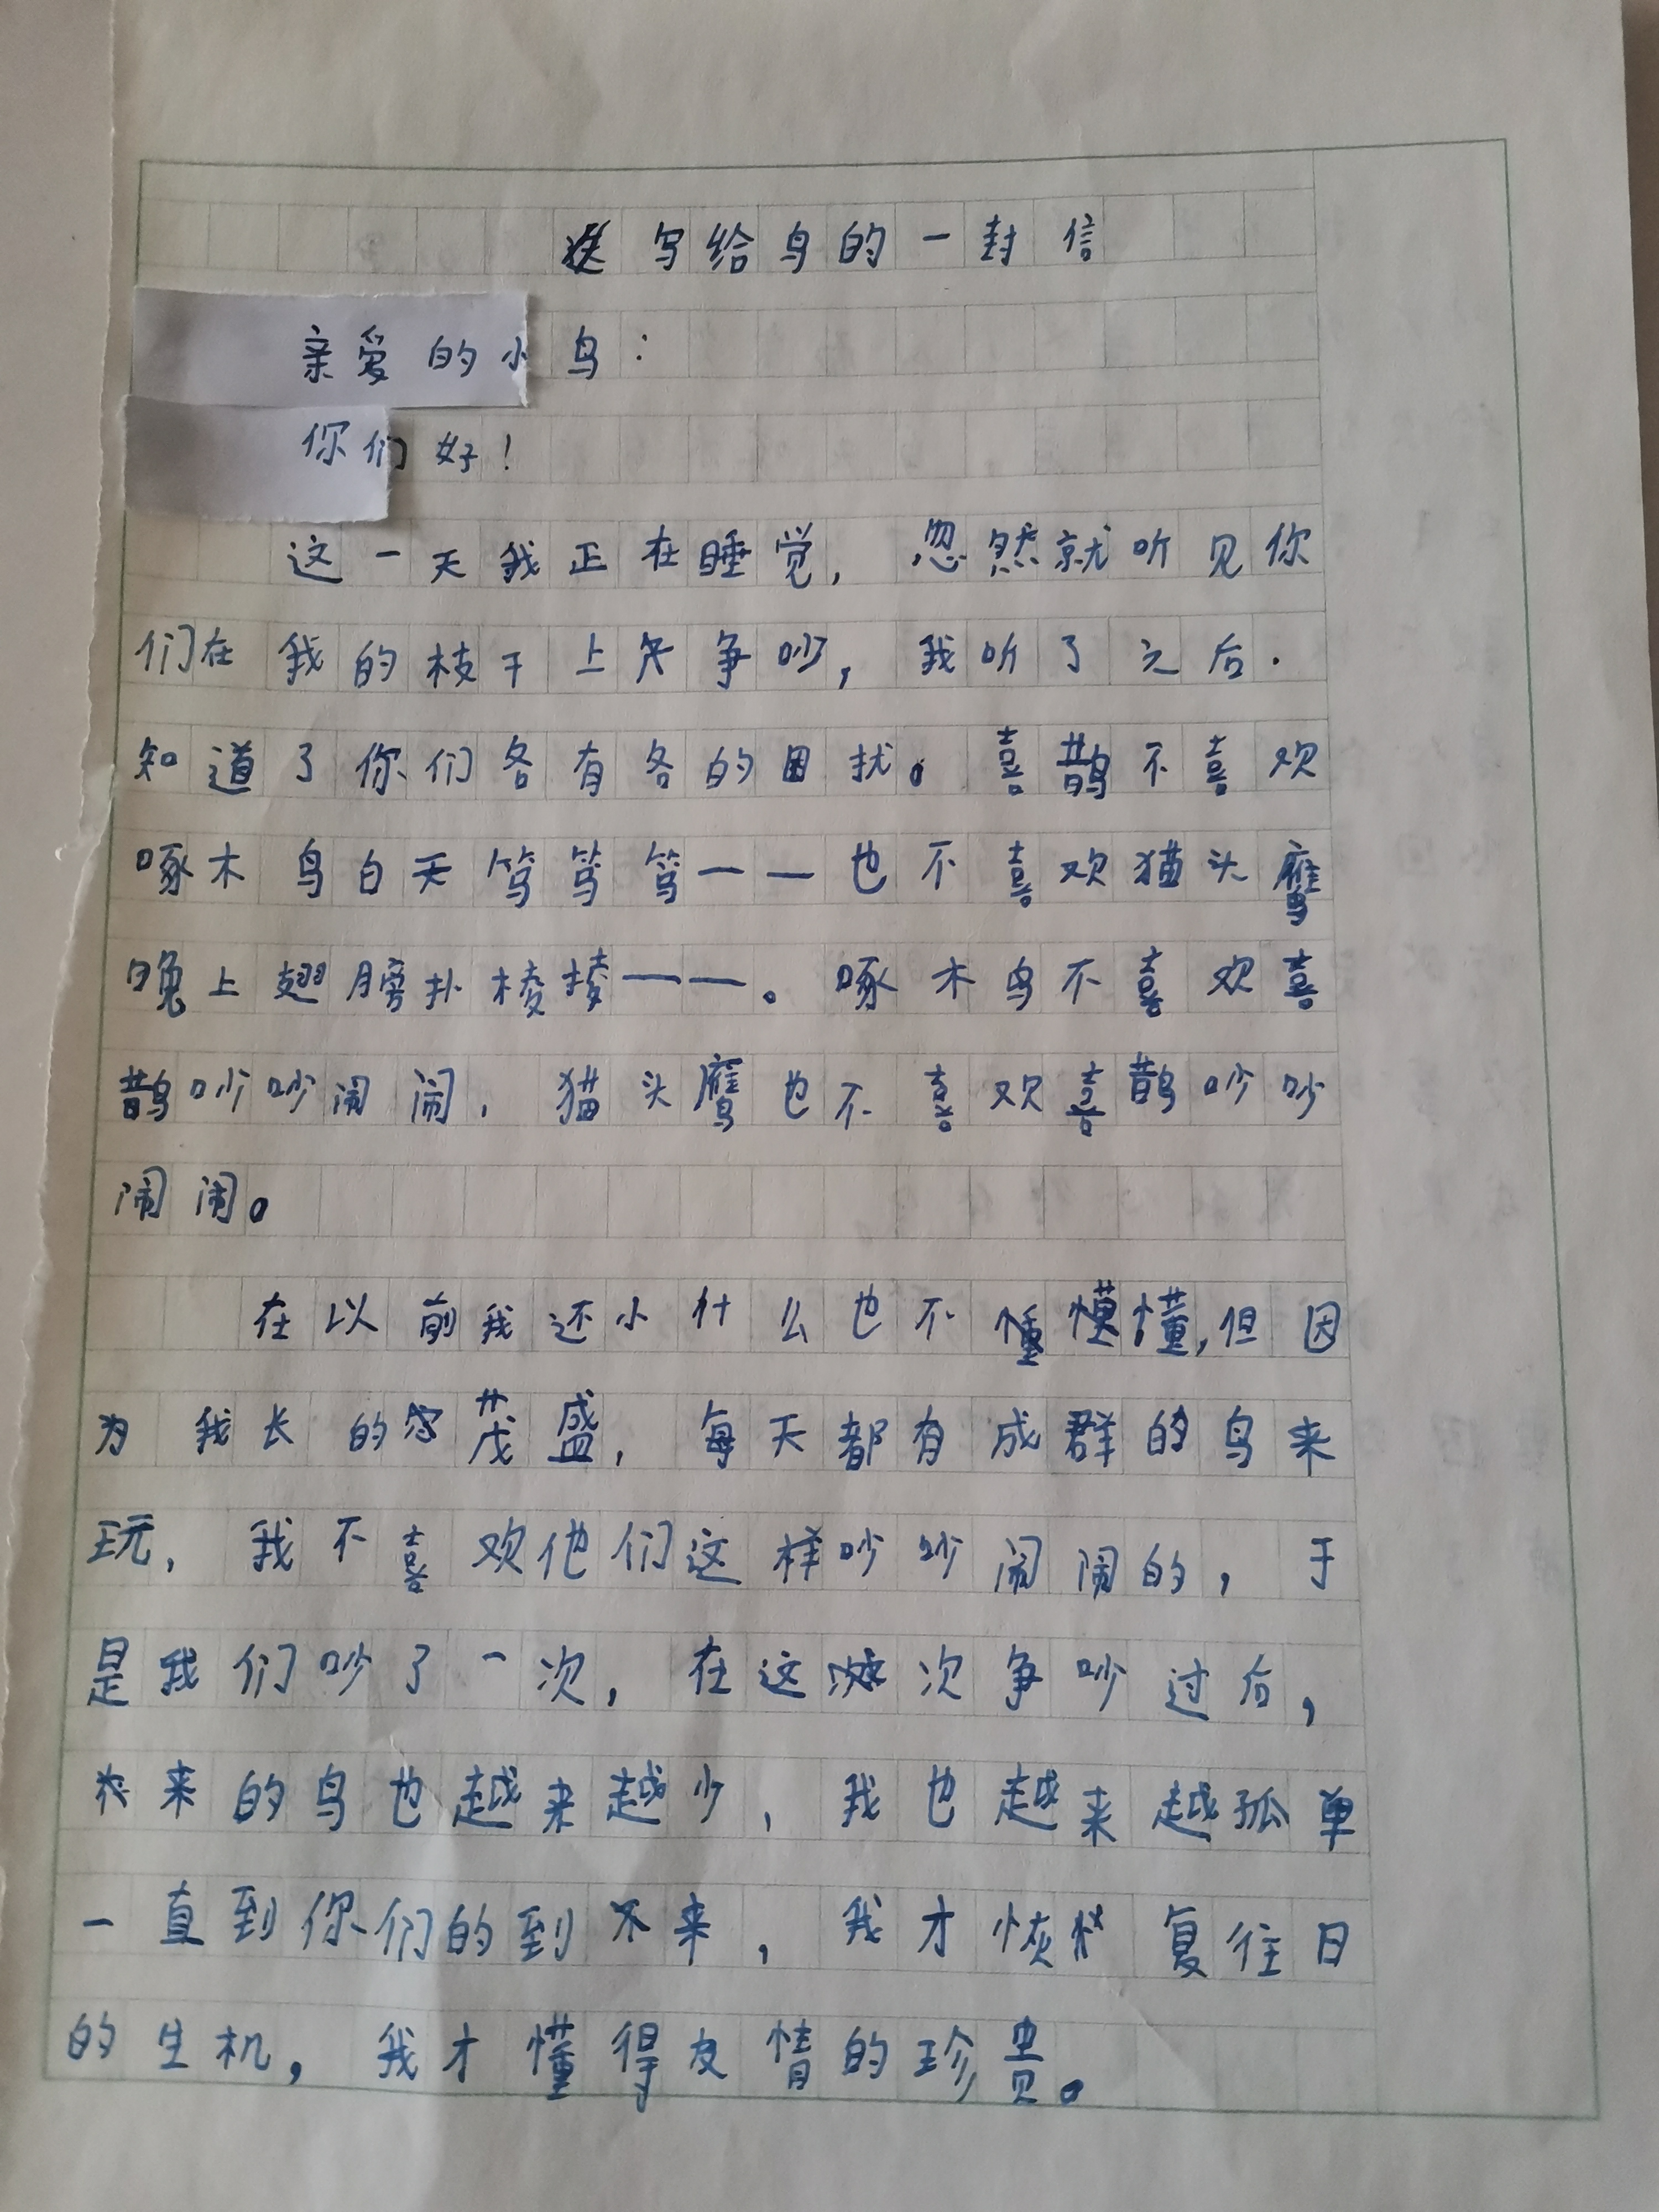 写给鸟的一封信
亲爱的小鸟：
你们好！
这一天我正在睡觉，忽然就听见你
们在我的枝干上争吵，我听了之后.
知道了你们各有各的困扰。喜鹊不喜欢
啄木鸟白天笃笃笃——也不喜欢猫头鹰
晚上翅膀扑棱棱——。啄木鸟不喜欢喜
鹊吵吵闹闹，猫头鹰也不喜欢喜鹊吵吵
闹闹。
在以前我还小什么也不懂，但因
为我长的茂盛，每天都有成群的鸟来
玩，我不喜欢他们这样吵吵闹闹的，于
是我们吵了一次，在这次争吵过后，
来的鸟也越来越少，我也越来越孤单
一直到你们的到来，我才恢复往日
的生机，我才懂得友情的珍贵。